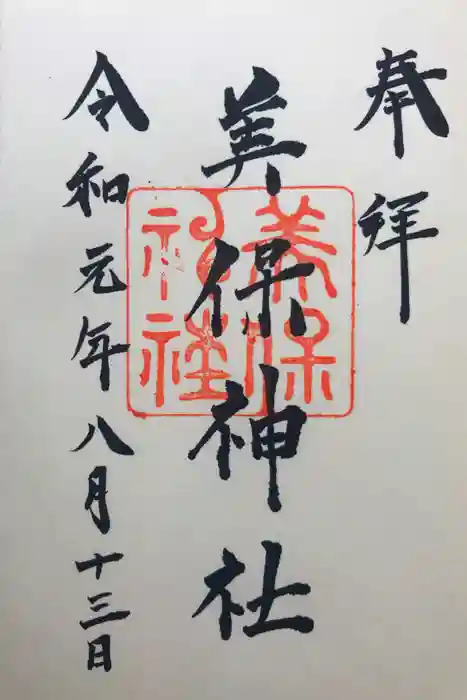 奉拝
美保神社
美保神社
令和元年八月十三日